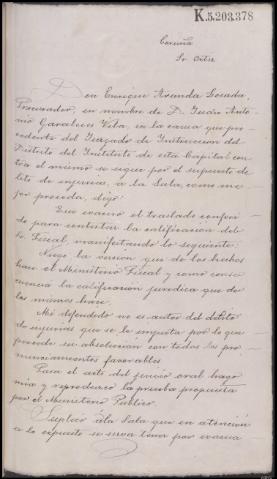 K.5.203.378
Coruña
Sr Ortiz
Don Enrique Aranda Losada,
Procurador, en nombre de D. Juan Anto-
nio Garaleces Vila, en la causa que pro-
cedente del Juzgado de Instruccion del
Distrito del Instituto de esta Capital con-
tra el mismo se sigue por el supuesto de-
lito de injurias, a la Sala, como me-
jor proceda, digo:
Que evacuo el traslado conferi-
do para contestar la calificacion del
Sr. Fiscal, manifestando lo siguiente:
Niego la version que de los hechos
hace el Ministerio Fiscal y como conse-
cuencia la calificación juridica que de
los mismos hace.
Mi defendido no es autor del delito
de injurias que se le imputa por lo que
procede su absolucion con todos los pro-
nunciamientos favorables
Para el acto del juicio oral hago
mia y reproduzco la prueba propuesta
por el Ministerio Publico.
Suplico a la Sala que en atención
a lo expuesto se sirva tener por evacua